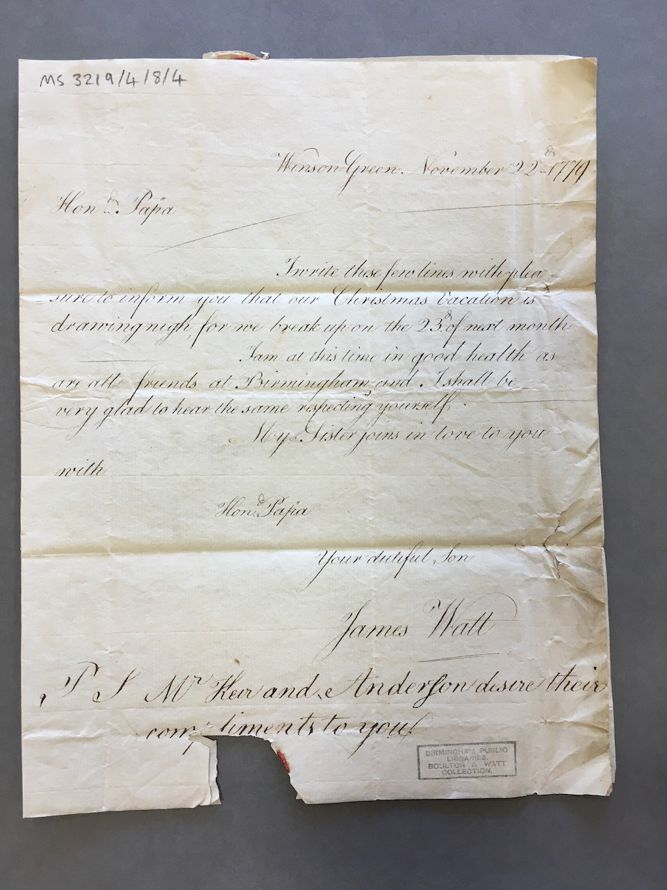 MS 3219/4/8/4
Winson Green. November 22d 1779
Hond. Papa
I write these few lines with plea
sure to inform you that our Christmas Vacation is
drawing nigh, for we break up on the 23d of next month
I am at this time in good health as
are all friends at Birmingham and I shall be
very glad to hear the same respecting yourself.
My Sister joins in love to you
with
Hond. Papa
Your dutiful Son
James Watt
P S Mr Keir and Anderson desire their
compliments to you.
BIRMINGHAM PUBLIC
LIBRARIES.
BOULTON & WATT
COLLECTION.